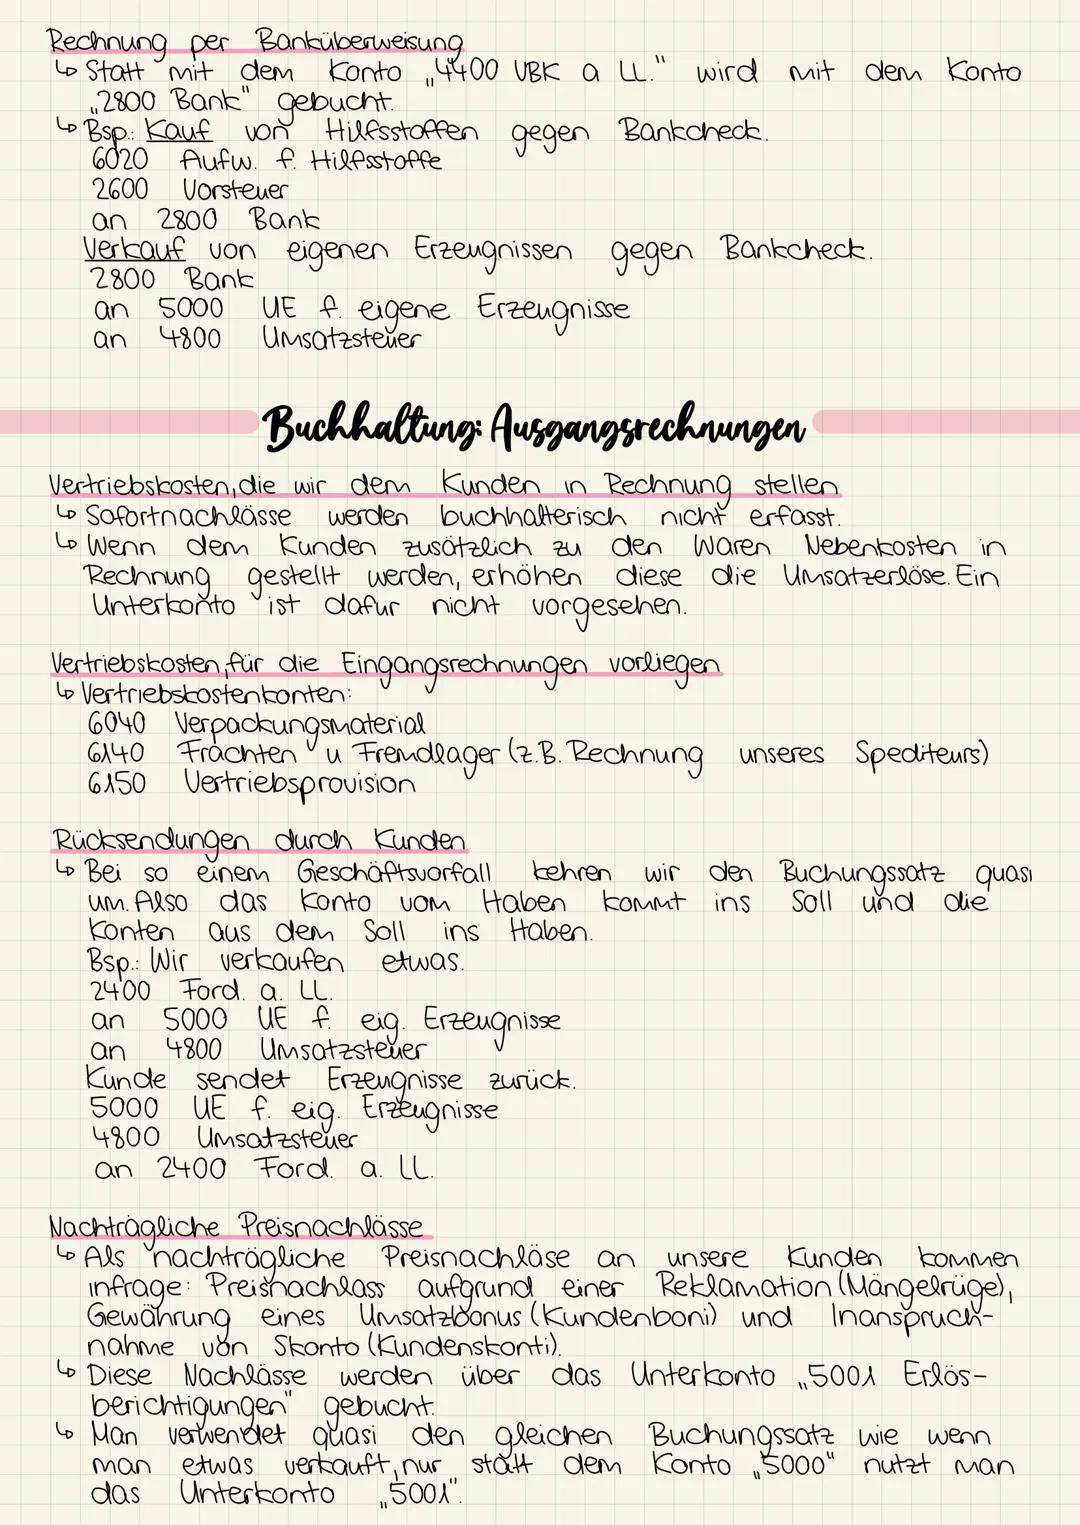 Rechnung per Banküberweisung
↳ Statt mit dem Konto „4400 VBK a LL." wird mit dem Konto
„2800 Bank" gebucht.
↳ Bsp.: Kauf von Hilfsstoffen gegen Bankcheck.
6020 Aufw. f. Hilfsstoffe
2600 Vorsteuer
an 2800 Bank
Verkauf von eigenen Erzeugnissen gegen Bankcheck.
2800 Bank
an 5000 UE f. eigene Erzeugnisse
an 4800 Umsatzsteuer
Buchhaltung: Ausgangsrechnungen
Vertriebskosten, die wir dem Kunden in Rechnung stellen
↳ Sofortnachlässe werden buchhalterisch nicht erfasst.
↳ Wenn dem Kunden zusätzlich zu den Waren Nebenkosten in
Rechnung gestellt werden, erhöhen diese die Umsatzerlöse. Ein
Unterkonto ist dafür nicht vorgesehen.
Vertriebskosten, für die Eingangsrechnungen vorliegen
↳ Vertriebskostenkonten:
6040 Verpackungsmaterial
6140 Frachten u Fremdlager (z.B. Rechnung unseres Spediteurs)
6150 Vertriebsprovision
Rücksendungen durch Kunden
↳ Bei so einem Geschäftsvorfall kehren wir den Buchungssatz quasi
um. Also das Konto vom Haben kommt ins Soll und die
Konten aus dem Soll ins Haben.
Bsp.: Wir verkaufen etwas.
2400 Ford. a. LL.
an 5000 UE f. eig. Erzeugnisse
an 4800 Umsatzsteuer
Kunde sendet Erzeugnisse zurück.
5000 UE f. eig. Erzeugnisse
4800 Umsatzsteuer
an 2400 Ford. a. LL.
Nachträgliche Preisnachlässe
↳ Als nachträgliche Preisnachläse an unsere Kunden kommen
infrage: Preisnachlass aufgrund einer Reklamation (Mängelrüge),
Gewährung eines Umsatzbonus (Kundenboni) und Inanspruch-
nahme von Skonto (Kundenskonti).
↳ Diese Nachlässe werden über das Unterkonto „5001 Erlös-
berichtigungen" gebucht.
↳ Man verwendet quasi den gleichen Buchungssatz wie wenn
man etwas verkauft, nur statt dem Konto „5000" nutzt man
das Unterkonto „5001".